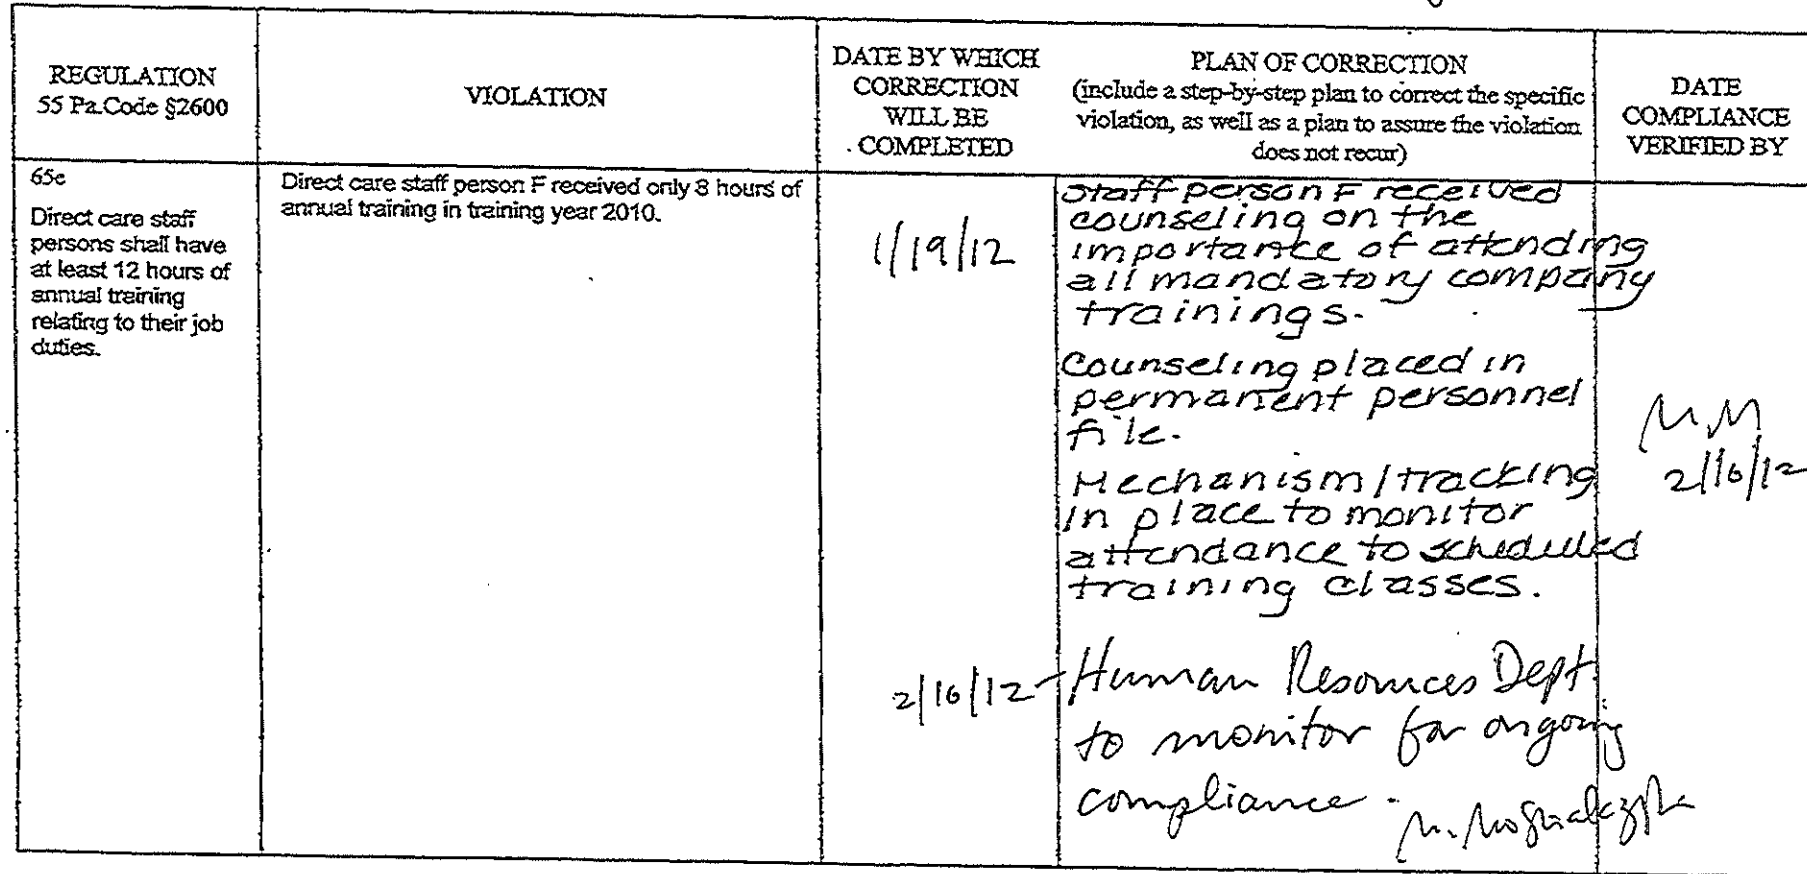 REGULATION
55 Pa.Code §2600
VIOLATION
DATE BY WHICH
CORRECTION
WILL BE
COMPLETED
PLAN OF CORRECTION
(include a step-by-step plan to correct the specific
violation, as well as a plan to assure the violation
does not recur)
DATE
COMPLIANCE
VERIFIED BY
65e
Direct care staff
persons shall have
at least 12 hours of
annual training
relating to their job
duties.
Direct care staff person F received only 8 hours of
annual training in training year 2010.
1/19/12
Staff person F received
counseling on the
importance of attending
all mandatory company
trainings.
Counseling placed in
permanent personnel
file.
Mechanism/tracking
in place to monitor
attendance to scheduled
training classes.
M.M
2/16/12
2/16/12 - Human Resources Dept.
to monitor for ongoing
compliance.
M.